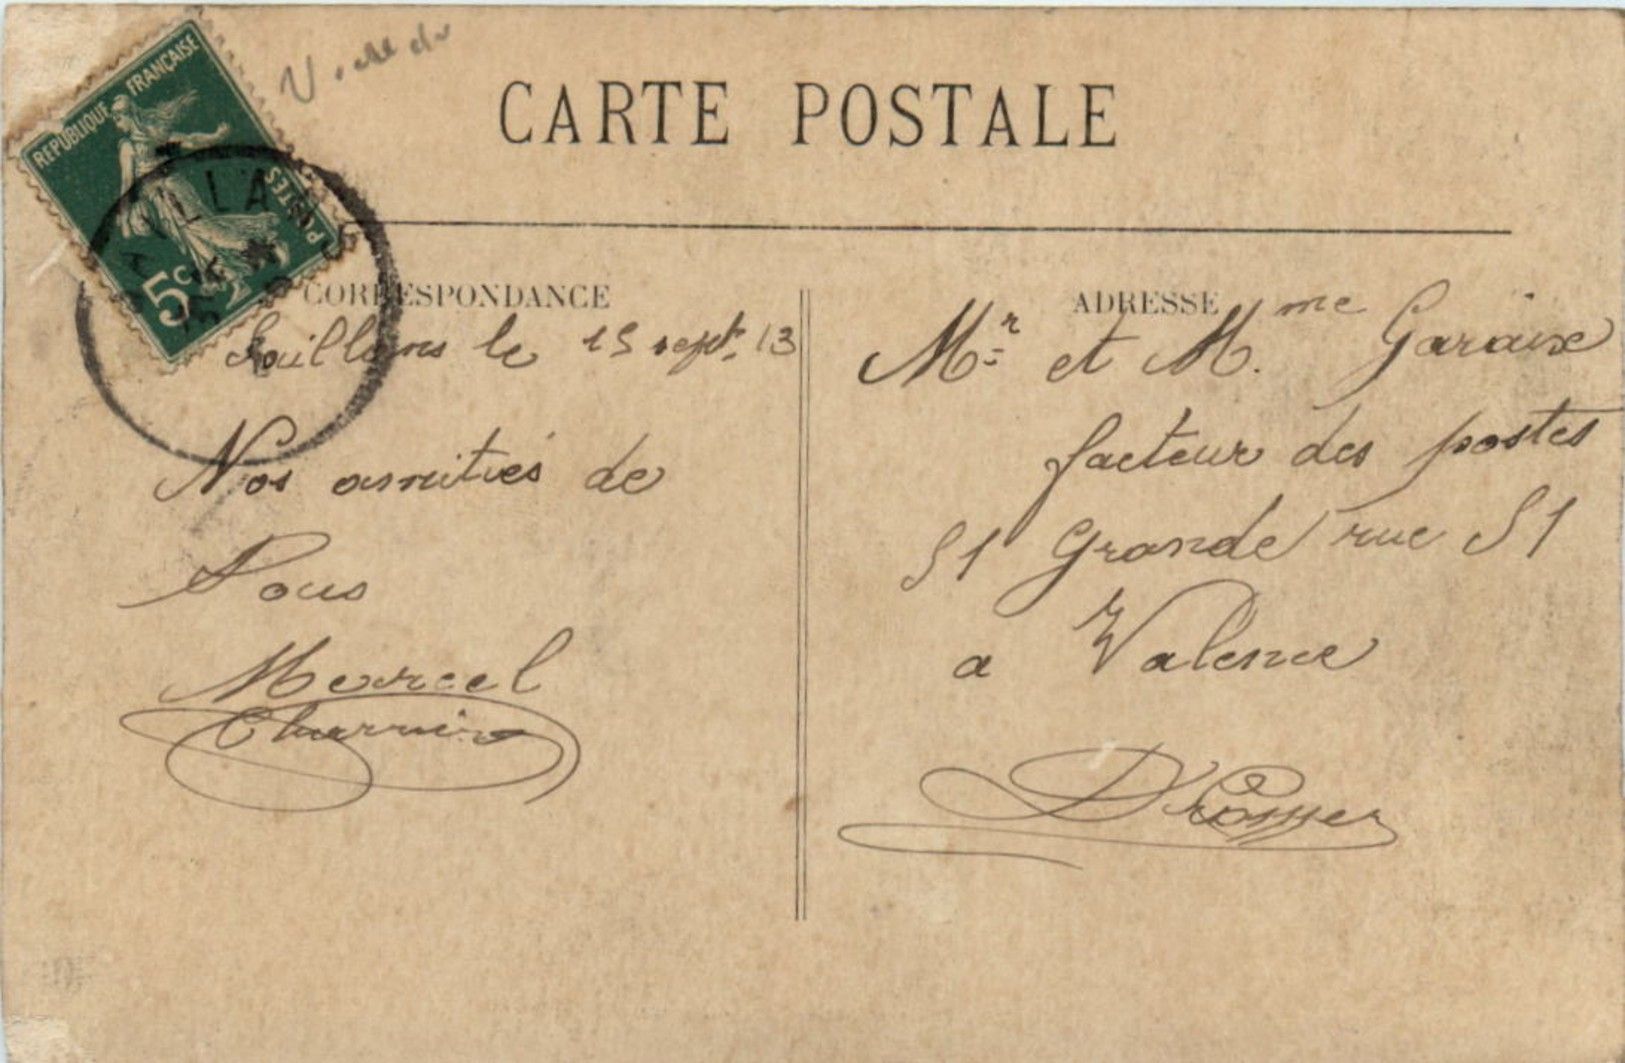 RÉPUBLIQUE FRANÇAISE
POSTES
5c
CARTE POSTALE
CORRESPONDANCE
Saillans le 15 sept. 13
Nos amitiés de
Tous
Marcel
ADRESSE
Mr et Mme Garaix
facteur des postes
51 Grande rue 51
a Valence
Drôme